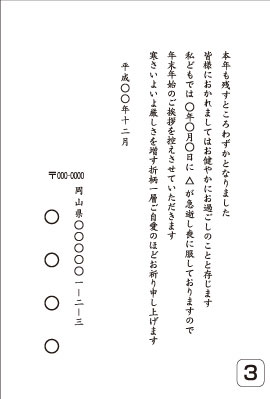 本年も残すところわずかとなりました
皆様におかれましてはお健やかにお過ごしのことと存じます
私どもでは 〇年〇月〇日に △ が急逝し喪に服しておりますので
年末年始のご挨拶を控えさせていただきます
寒さいよいよ厳しさを増す折柄一層ご自愛のほどお祈り申し上げます
平成〇〇年十二月
〒000-0000
岡山県〇〇〇〇〇一－二－三
〇〇〇〇
3